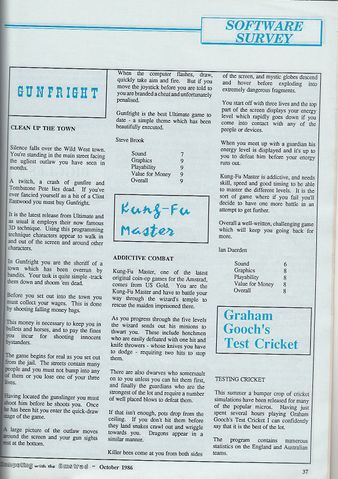 SOFTWARE
SURVEY
GUNFRIGHT
CLEAN UP THE TOWN
Silence falls over the Wild West town.
You're standing in the main street facing
the ugliest outlaw you have seen in
months.
A twitch, a crash of gunfire and
Tombstone Pete lies dead. If you've
ever fancied yourself as a bit of a Clint
Eastwood you must buy Gunfright.
It is the latest release from Ultimate and
as usual it employs their now famous
3D technique. Using this programming
technique characters appear to walk in
and out of the screen and around other
characters.
In Gunfright you are the sheriff of a
town which has been overrun by
bandits. Your task is quite simple -track
them down and shoom 'em dead.
Before you set into the town you
must collect your wages. This is done
by shooting falling money bags.
This money is necessary to keep you in
bullets and horses, and to pay the fines
you incur for shooting innocent
bystanders.
The game begins for real as you set out
from the jail. The streets contain many
people and you must not bump into any
of them or you lose one of your three
lives.
Having located the gunslinger you must
shoot him before he shoots you. Once
he has been hit you enter the quick-draw
stage of the game.
A large picture of the outlaw moves
around the screen and your gun sights
rest at the bottom.
When the computer flashes, draw,
quickly take aim and fire. But if you
move the joystick before you are told to
you are branded a cheat and unfortunately
penalised.
Gunfright is the best Ultimate game to
date - a simple theme which has been
beautifully executed.
Steve Brook
Sound 7
Graphics 9
Playability 9
Value for Money 9
Overall 9
Kung-Fu
Master
ADDICTIVE COMBAT
Kung-Fu Master, one of the latest
original coin-op games for the Amstrad,
comes from US Gold. You are the
Kung-Fu Master and have to battle your
way through the wizard's temple to
rescue the maiden imprisoned there.
As you progress through the five levels
the wizard sends out his minions to
dwart you. These include henchmen
who are easily defeated with one hit and
knife throwers - whose knives you have
to dodge - requiring two hits to stop
them.
There are also dwarves who somersault
on to you unless you can hit them first,
and finally the guardians who are the
strongest of the lot and require a number
of well placed blows to defeat them.
If that isn't enough, pots drop from the
ceiling. If you don't hit them before
they land snakes crawl out and wriggle
towards you. Dragons appear in a
similar manner.
Killer bees come at you from both sides
of the screen, and mystic globes descend
and hover before exploding into
extremely dangerous fragments.
You start off with three lives and the top
part of the screen displays your energy
level which rapidly goes down if you
come into contact with any of the
people or devices.
When you meet up with a guardian his
energy level is displayed and it's up to
you to defeat him before your energy
runs out.
Kung-Fu Master is addictive, and needs
skill, speed and good timing to be able
to master the different levels. It is the
sort of game where if you fail you'll
decide to have one more battle in an
attempt to get further.
Overall a well-written, challenging game
which will keep you going back for
more.
Ian Duerden
Sound 6
Graphics 8
Playability 8
Value for Money 8
Overall 8
Graham
Gooch's
Test Cricket
TESTING CRICKET
This summer a bumper crop of cricket
simulations have been released for many
of the popular micros. Having just
spent several hours playing Graham
Gooch's Test Cricket I can confidently
say that it is the best of the lot.
The program contains numerous
statistics on the England and Australian
teams.
Computing with the Amstrad - October 1986
37